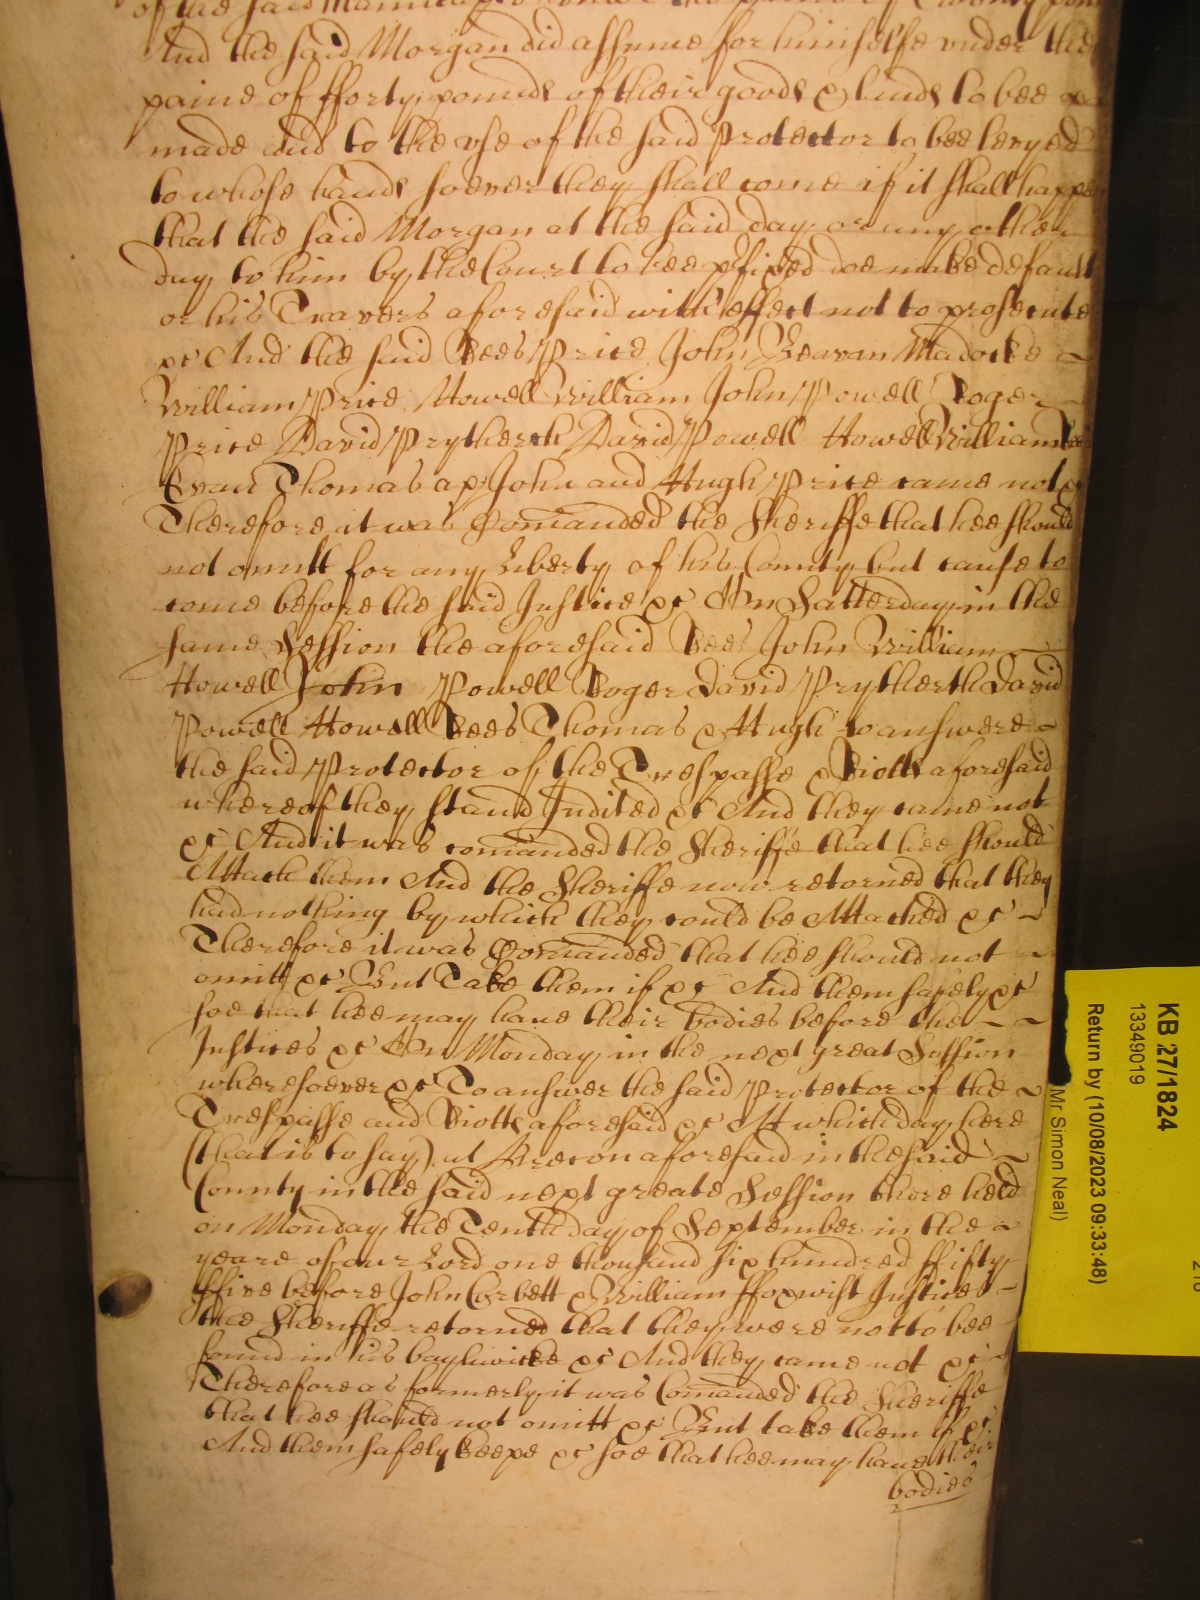 of the said
And the said Morgan did assume for himselfe vnder the
paine of fforty pounds of their goods & lands to bee
made and to the vse of the said Protector to bee levyed
to whose hands soever they shall come if it shall happen
that the said Morgan at the said day or any other
day to him by the Court to bee p'fixed doe make default
or his Travers aforesaid with effect not to prosecute
&c And the said Rees Price John Beavan Madocke
William Price Howell William John Powell Roger
Price David Prytherch David Powell Howell William
Evan Thomas ap John and Hugh Price came not &c
Therefore it was Comanded the Sheriffe that hee should
not omitt for any Liberty of his County but cause to
come before the said Justice &c On Satterday in the
same Session the aforesaid Rees John William
Howell John Powell Roger David Prytherch David
Powell Howell Rees Thomas & Hugh to answere
the said Protector of the Trespasse & Riotts aforesaid
whereof they stand Indited &c And they came not
&c And it was comanded the Sheriffe that hee should
Attach them And the Sheriffe now retorned that they
had nothing by which they could be Attached &c
Therefore it was Comanded that hee should not
omitt &c But Take them if &c And them safely &c
soe that hee may have their bodies before the
Justices &c On Monday in the next great Session
wheresoever &c To answer the said Protector of the
Trespasse and Riotts aforesaid &c At which day here
(that is to say) at Brecon aforesaid in the said
County in the said next greate Session there held
on Monday the Tenth day of September in the
yeare of our Lord one thousand six hundred ffifty
ffive before John Corbett & William ffoxwist Justices
the Sheriffe retorned that they were not to bee
found in his baylwicke &c And they came not &c
Therefore as formerly it was Comanded the Sheriffe
that hee should not omitt &c But take them if &c
And them safely keepe &c soe that hee may have their
bodies
KB 27/1824
13349019
Return by (10/08/2023 09:33:48)
Mr Simon Neal)